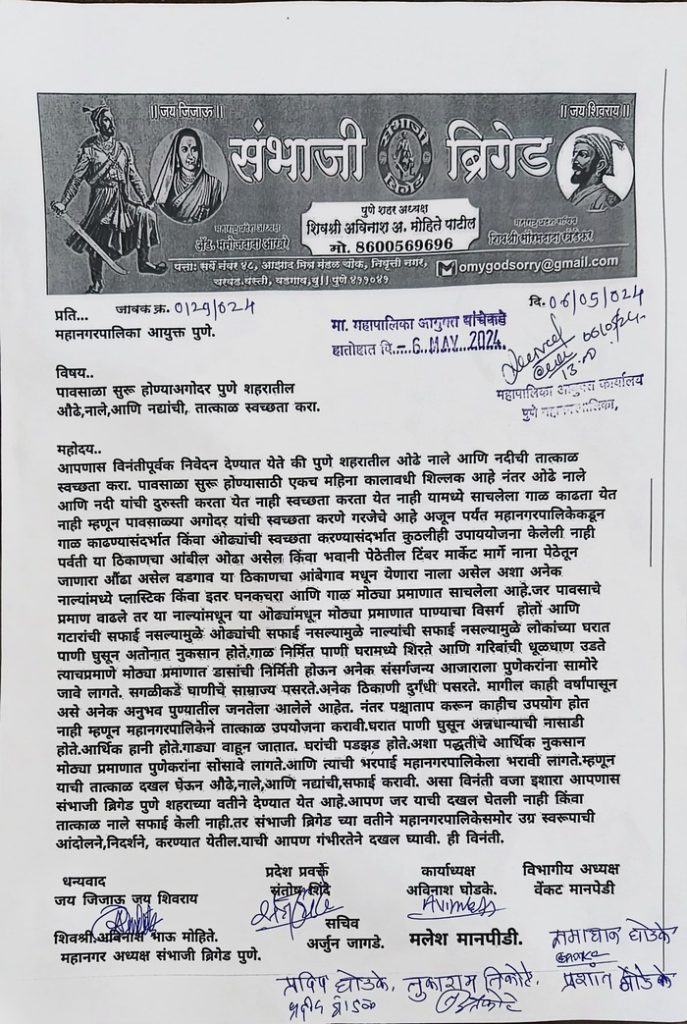 ॥ जय जिजाऊ ॥
॥ जय शिवराय ॥
संभाजी ब्रिगेड
पुणे शहर अध्यक्ष
शिवश्री अविनाश अ. मोहिते पाटील
मो. 8600569696
पत्ता: सर्वे नंबर ४८, आझाद मित्र मंडळ चौक, निवृत्ती नगर,
वडगाव, बु॥ पुणे ४११०४१
omygodsorry@gmail.com
प्रति... जावक क्र. 0129/024
दि. 06/05/024
महानगरपालिका आयुक्त पुणे.
मा. महापालिका आयुक्त यांचेकडे
हातोहात दि. - 6 MAY 2024
महापालिका आयुक्त कार्यालय
पुणे महानगरपालिका,
विषय..
पावसाळा सुरू होण्याअगोदर पुणे शहरातील
औढे,नाले,आणि नद्यांची, तात्काळ स्वच्छता करा.
महोदय..
आपणास विनंतीपूर्वक निवेदन देण्यात येते की पुणे शहरातील ओढे नाले आणि नदीची तात्काळ
स्वच्छता करा. पावसाळा सुरू होण्यासाठी एकच महिना कालावधी शिल्लक आहे नंतर ओढे नाले
आणि नदी यांची दुरुस्ती करता येत नाही स्वच्छता करता येत नाही यामध्ये साचलेला गाळ काढता येत
नाही म्हणून पावसाळ्या अगोदर यांची स्वच्छता करणे गरजेचे आहे अजून पर्यंत महानगरपालिकेकडून
गाळ काढण्यासंदर्भात किंवा ओढ्यांची स्वच्छता करण्यासंदर्भात कुठलीही उपाययोजना केलेली नाही
पर्वती या ठिकाणचा आंबील ओढा असेल किंवा भवानी पेठेतील टिंबर मार्केट मार्गे नाना पेठेतून
जाणारा औंढा असेल वडगाव या ठिकाणचा आंबेगाव मधून येणारा नाला असेल अशा अनेक
नाल्यांमध्ये प्लास्टिक किंवा इतर घनकचरा आणि गाळ मोठ्या प्रमाणात साचलेला आहे.जर पावसाचे
प्रमाण वाढले तर या नाल्यांमधून या ओढ्यांमधून मोठ्या प्रमाणात पाण्याचा विसर्ग होतो आणि
गटारांची सफाई नसल्यामुळे ओढ्यांची सफाई नसल्यामुळे नाल्यांची सफाई नसल्यामुळे लोकांच्या घरात
पाणी घुसून अतोनात नुकसान होते.गाळ निर्मित पाणी घरामध्ये शिरते आणि गरिबांची धूळधाण उडते
त्याचप्रमाणे मोठ्या प्रमाणात डासांची निर्मिती होऊन अनेक संसर्गजन्य आजाराला पुणेकरांना सामोरे
जावे लागते. सगळीकडे घाणीचे साम्राज्य पसरते.अनेक ठिकाणी दुर्गंधी पसरते. मागील काही वर्षांपासून
असे अनेक अनुभव पुण्यातील जनतेला आलेले आहेत. नंतर पश्चाताप करून काहीच उपयोग होत
नाही म्हणून महानगरपालिकेने तात्काळ उपयोजना करावी.घरात पाणी घुसून अन्नधान्याची नासाडी
होते.आर्थिक हानी होते.गाड्या वाहून जातात. घरांची पडझड होते.अशा पद्धतीचे आर्थिक नुकसान
मोठ्या प्रमाणात पुणेकरांना सोसावे लागते.आणि त्याची भरपाई महानगरपालिकेला भरावी लागते.म्हणून
याची तात्काळ दखल घेऊन औढे,नाले,आणि नद्यांची,सफाई करावी. असा विनंती वजा इशारा आपणास
संभाजी ब्रिगेड पुणे शहराच्या वतीने देण्यात येत आहे.आपण जर याची दखल घेतली नाही किंवा
तात्काळ नाले सफाई केली नाही.तर संभाजी ब्रिगेड च्या वतीने महानगरपालिकेसमोर उग्र स्वरूपाची
आंदोलने,निदर्शने, करण्यात येतील.याची आपण गंभीरतेने दखल घ्यावी. ही विनंती.
धन्यवाद
जय जिजाऊ जय शिवराय
शिवश्री.अविनाश भाऊ मोहिते.
महानगर अध्यक्ष संभाजी ब्रिगेड पुणे.
प्रदेश प्रवक्ते
संतोष शिंदे
सचिव
अर्जुन जागडे.
कार्याध्यक्ष
अविनाश घोडके.
मलेश मानपीडी.
विभागीय अध्यक्ष
वेंकट मानपेडी
समाधान घोडके
प्रशांत घोडके
प्रदिप घोडके. तुकाराम निकोटे.